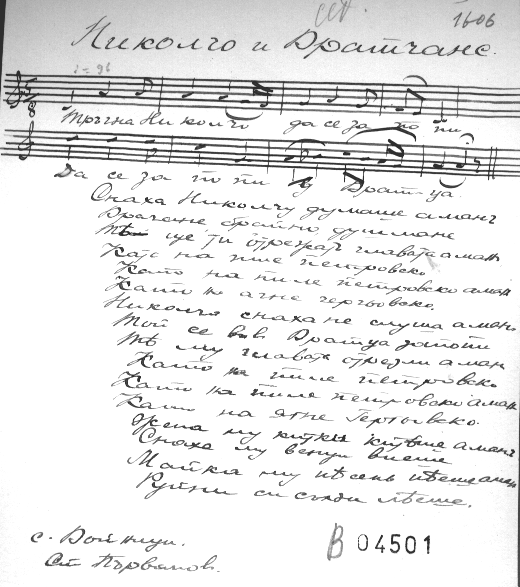 1606
Николчо и Вратчане.
♩ = 96
Тръгна Николчо да се за то пи
Да се за то пи у Врат-ца.
Снаха Николчу думаше аманъ
Врачене братно душмане
Тѣ ще ти отрежатъ главата аманъ
Като на пиле петровско
Като на пиле петровско аман
Като на агне гергьовско.
Николчо снаха не слуша аманъ
Той се във Вратца затопи
Тѣ му главата отрезли аман
Като на пиле петровско
Като на пиле петровско аманъ
Като на ягне Гергьовско.
Жена му китки китеше аманъ
Снаха му венци виеше
Майка му пѣсень пѣеше аман
Руйни си сълзи лѣеше.
с. Войници.
Ст. Първанов.
B 04501